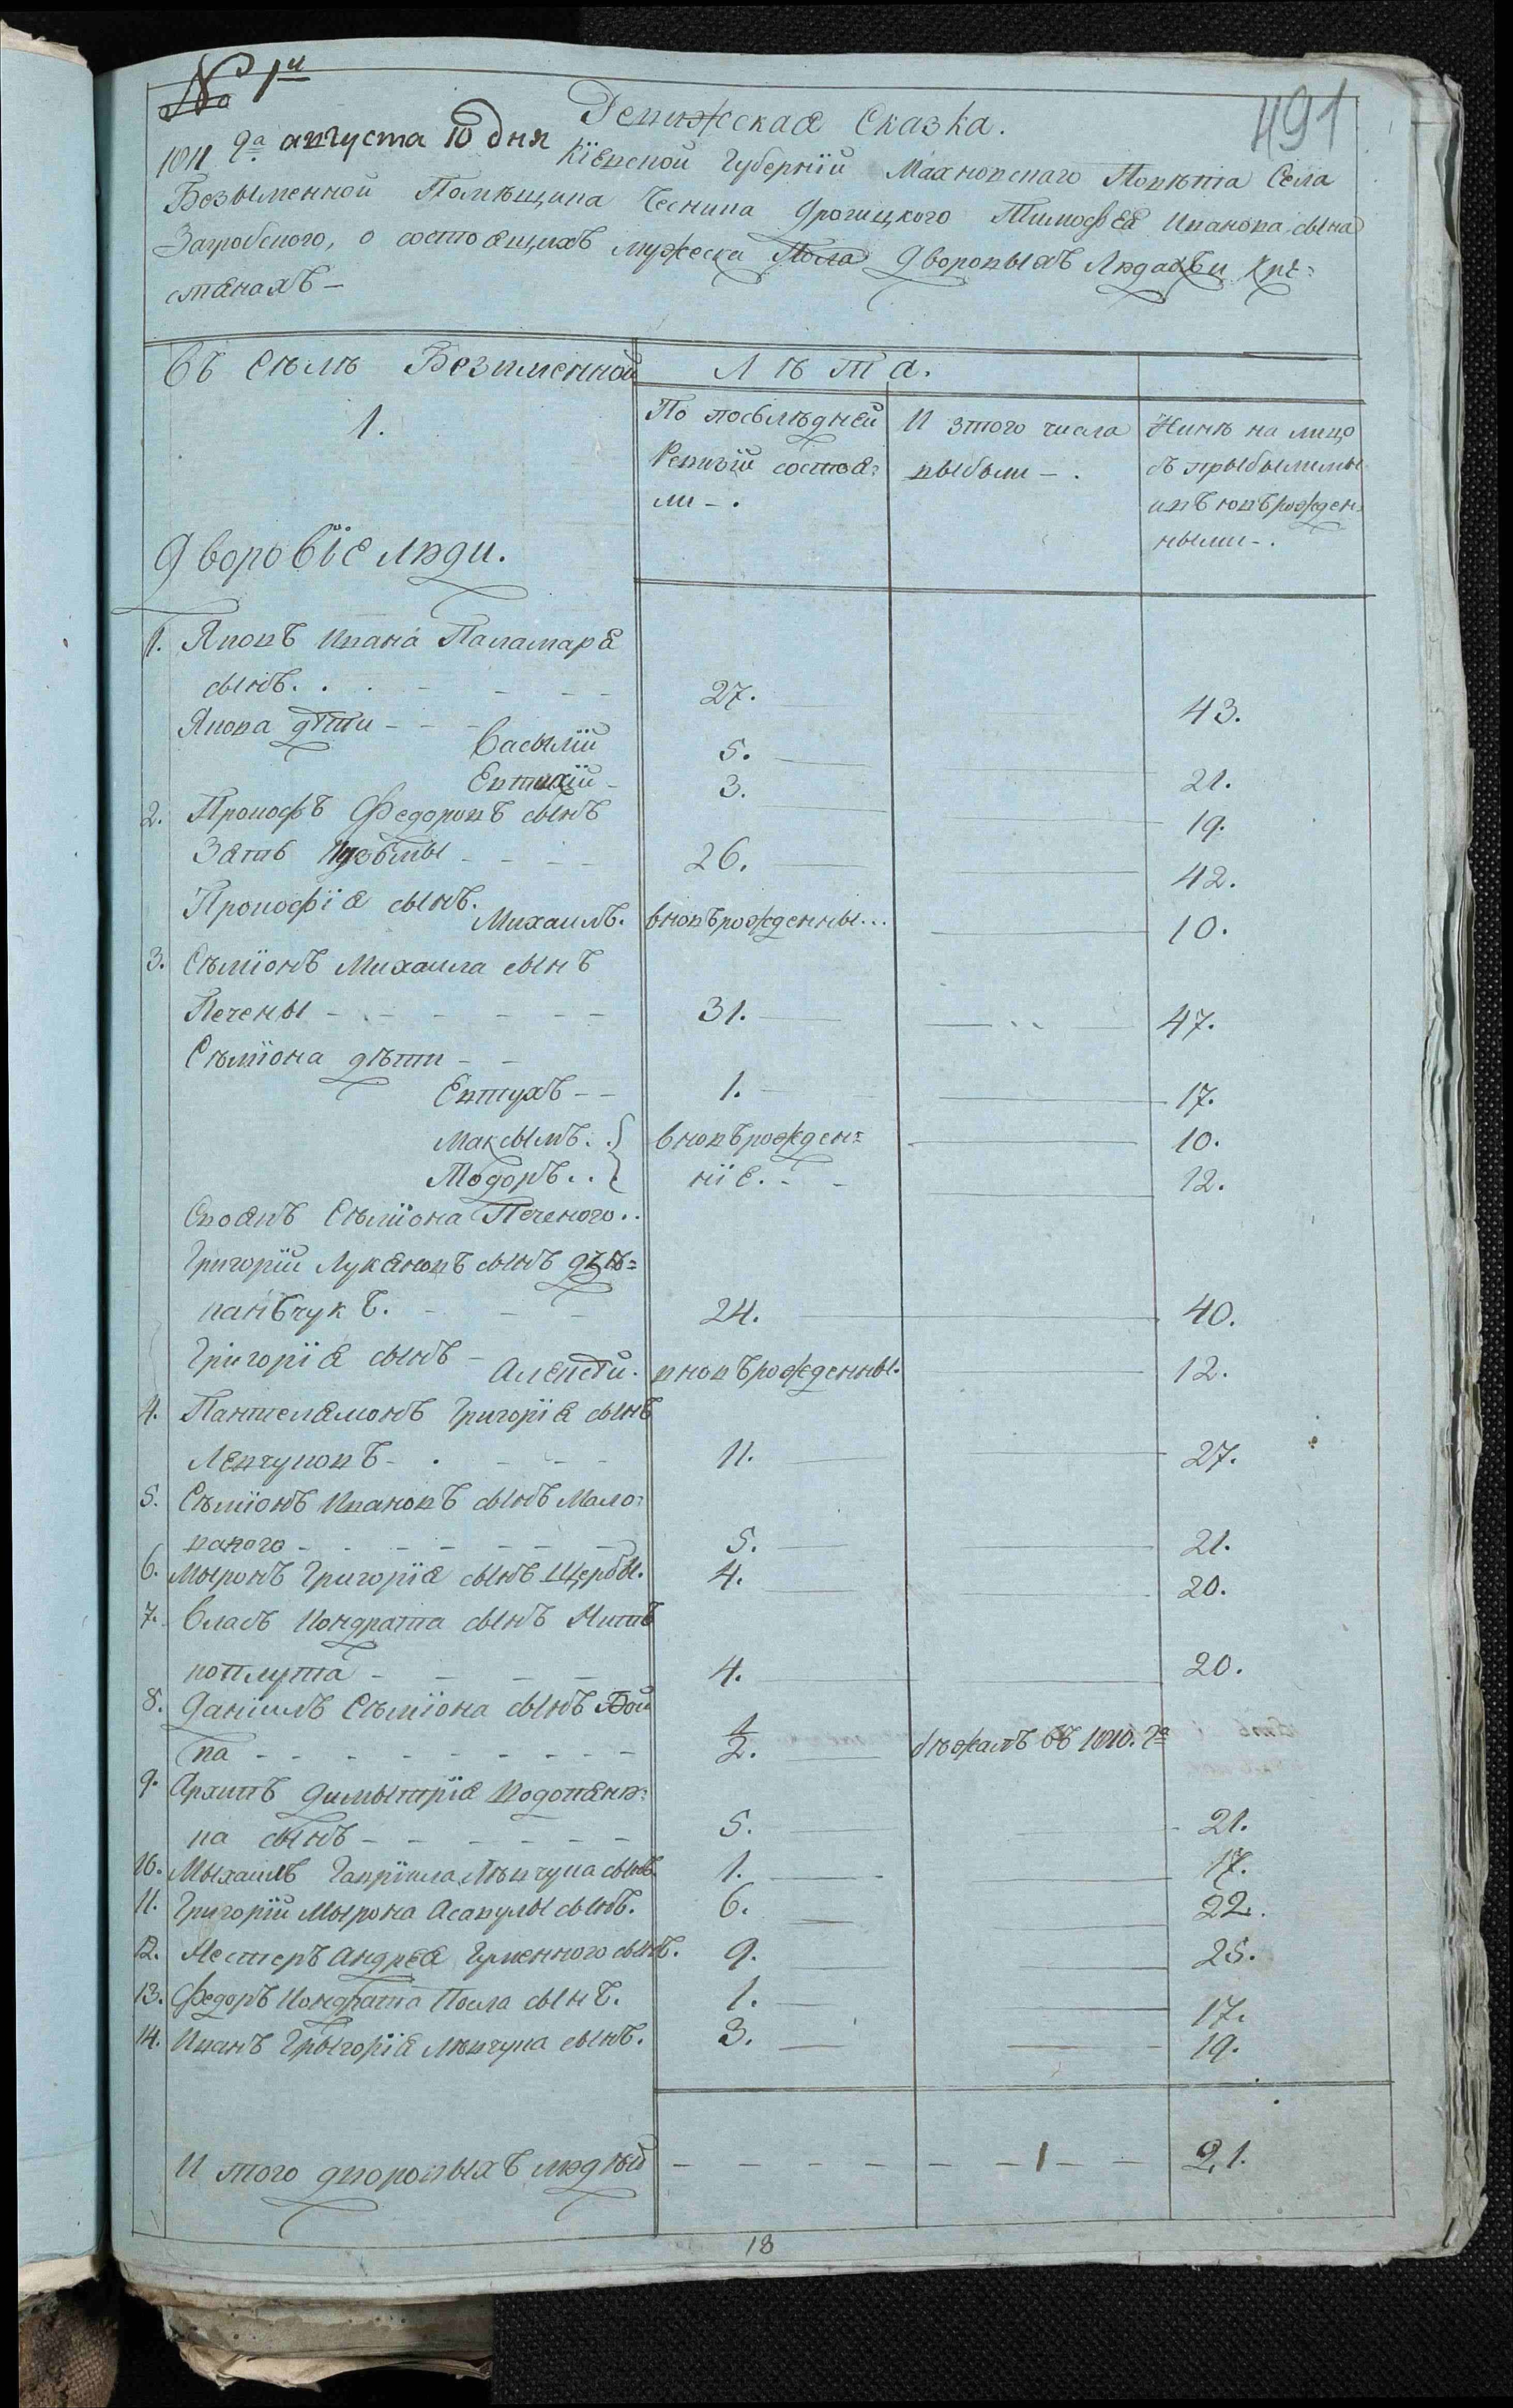 № 1й
491
Ревижская Сказка.
1811 года августа 10 дня Кіевской Губерніи Махновскаго Повѣта Села
Безыменной Помѣщика Чесника Дрогицкого Тимофея Иванова сына
Загробского, о состоящихъ мужеска Пола Дворовыхъ Людахъ и Кре=
стянахъ -
Въ Селѣ Безименной
Лѣта.
1.
По посьлѣдней
Ревизіи состоя=
ли - .
И зтого числа
выбыли - .
Нинѣ на лицо
съ прыбылимы
ивъ новърожден=
ными - .
Дворовіе люди.
1. Яковъ Ивана Паламаря
сынъ. . . - - - - 27. 43.
Якова дѣти - - -
Васылій 5. 21.
Евтихій - 3. 19.
2. Прокофъ Федоровъ сынъ
Зять Кузьмы - - - - 26. 42.
Прокофія сынъ.
Михаилъ. вновърожденны... 10.
3. Сѣміонъ Михаила сынъ
Печены - - - - - - 31. 47.
Сѣміона дѣти - -
Евтухъ - - 1. 17.
Максымъ. . вновърожден= 10.
Тодоръ. . . ніе. - - 12.
Своякъ Сѣміона Печеного. .
Григорій Лукяновъ сынъ
панъчукъ. - - - 24. 40.
Григорія сынъ -
Алексѣй. вновърожденны. 12.
4. Пантелямонъ Григорія сынъ
Левчуковъ - . - - - 11. 27.
5. Сѣміонъ Ивановъ сынъ Мало=
ваного - - - - - - 5. 21.
6. Мыронъ Григорія сынъ Щербы. 4. 20.
7. Власъ Кондрата сынъ Нить
коплута - - - - 4. 20.
8. Даніилъ Сѣміона сынъ Бой
ка - - - - - - - - 1/2. бѣжалъ въ 1810. го
9. Архипъ Димытрія Водопянь=
ка сынъ - - - - - - 5. 21.
10. Мыхаилъ Гавріила Лѣвчука сынъ 1. 17.
11. Григорій Мырона Асавулы сынъ. 6. 22.
12. Нестеръ Андрея Гуменного сынъ. 9. 25.
13. Федоръ Кондрата Посла сынъ. 1. 17.
14. Иванъ Грыгорія Лѣвчука сынъ. 3. 19.
И того дворовыхъ людѣй - - - - - - 1 - - 21.
18